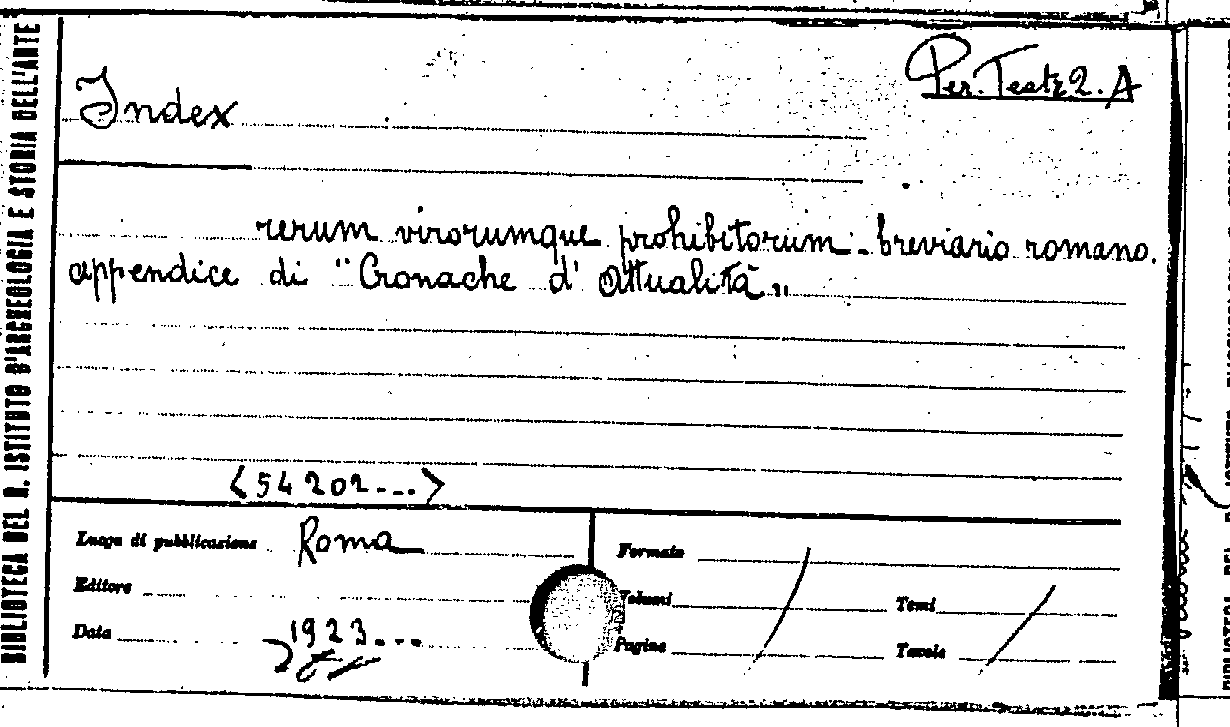 BIBLIOTECA DEL R. ISTITUTO D'ARCHEOLOGIA E STORIA DELL'ARTE
Per. Teatr 2. A
Index
rerum virorumque prohibitorum - breviario romano.
appendice di "Cronache d'Attualità„
<54202...>
Luogo di pubblicazione Roma
Editore
Data 1923...
Formato
Volumi
Tomi
Pagine
Tavole